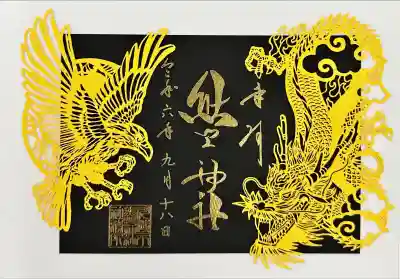 奉拝
熊野神社
令和六年 九月 十八日